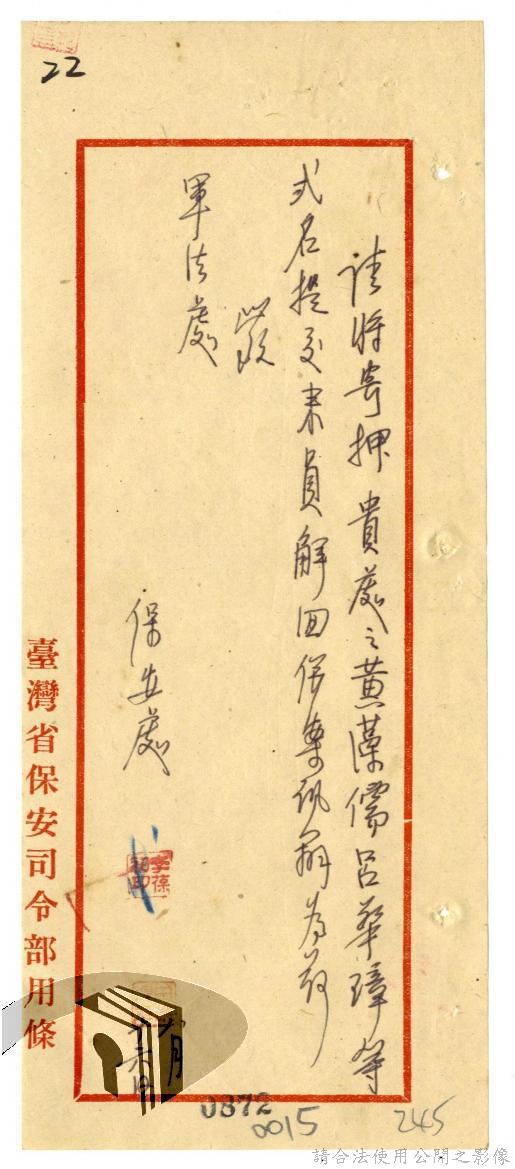 22
請將寄押貴處之黃藻儒呂華璋等
弍名提交来員解回併案訊辦為荷
此致
軍法處
保安處
六月
十六日
臺灣省保安司令部用條
0872
0015
245
請合法使用公開之影像